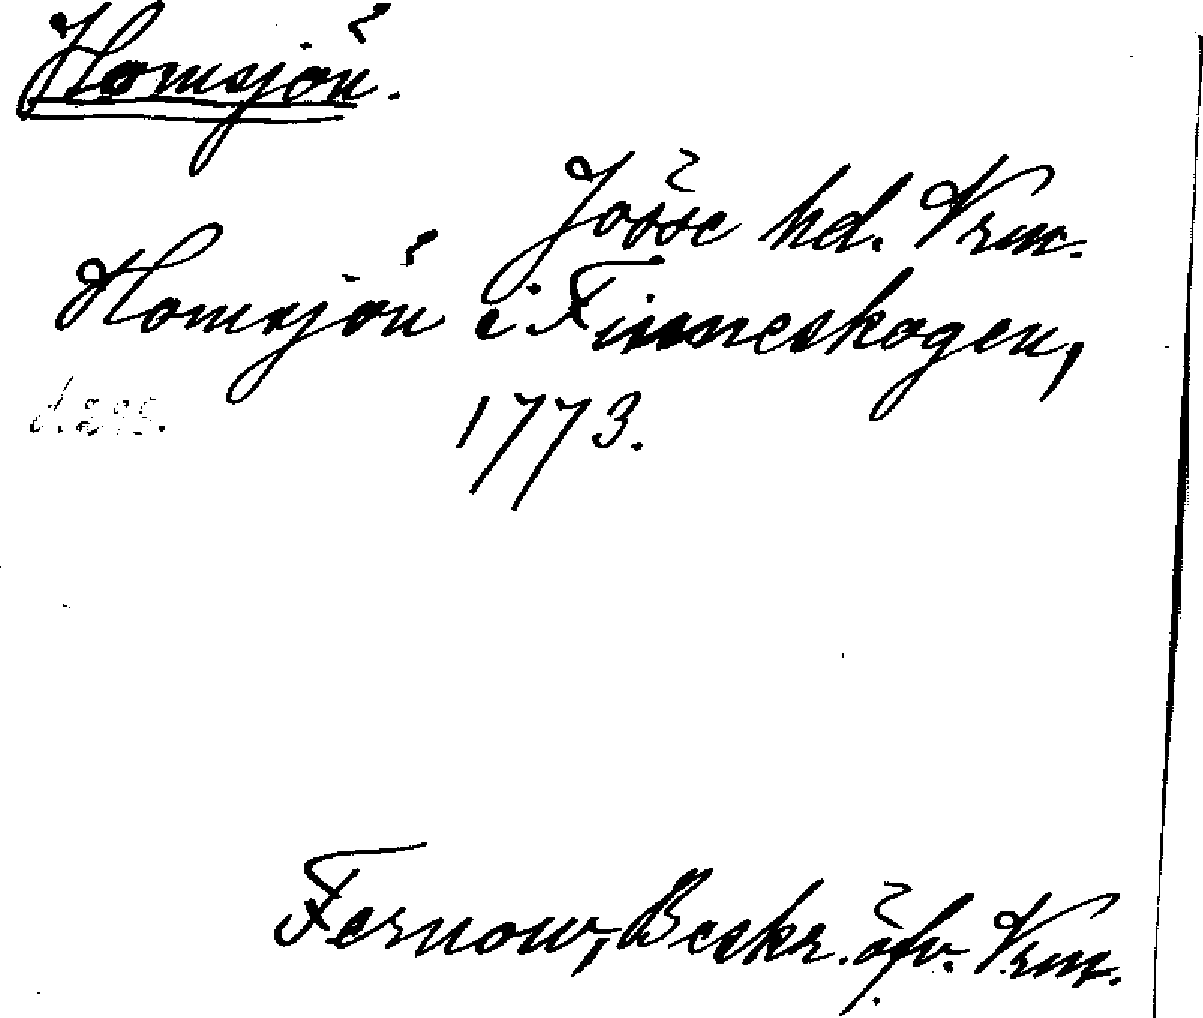 Homsjön.
Jösse hd. Vrm.
Homsjön i Finneskogen,
1773.
Fernow, Beskr. öfv. Vrm.